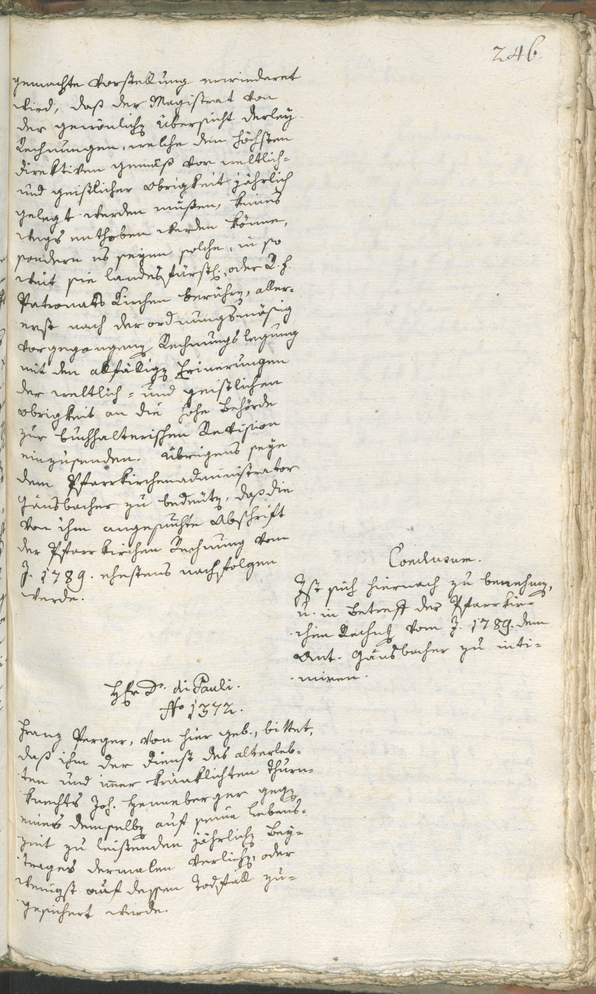 246.
gemachte Vorstellung erwiederet
wird, daß der Magistrat von
der gewönlichen Übersicht derley
Rechnungen, welche den höchsten
Direktiven gemäß vor weltlich-
und geistlicher Obrigkeit jährlich
gelegt werden müßen, keines
wegs enthoben werden könne,
sondern es seyen solche, in so
weit sie landesfürstl. oder L. f.
Patronats Kirchen berühren, aller-
erst nach der ordnungsmäsig
vorgegangenen Rechnungs legung
mit den allfälligen Erinerungen
der weltlich- und geistlichen
Obrigkeit an die hohe Behörde
zur buchhalterischen Revision
einzusenden. Übrigens seye
dem Pfarrkirchenadministrator
Gänsbacher zu bedeuten, daß die
von ihm angesuchte Abschrift
der Pfarrkirchen Rechnung vom
J. 1789. ehestens nachfolgen
werde.
Conclusum.
Ist sich hiernach zu benehmen,
u. in Betreff der Pfarrkir-
chen Rechng vom J. 1789. dem
Ant. Gänsbacher zu inti-
miren.
Hr Dr. di Pauli.
No 1372.
Franz Perger, von hier geb., bittet,
daß ihm der Dienst des alterleb-
ten und imer kränklichten Thurn-
knechts Joh. Henneberger gegen
eines demselben auf seine Lebens-
zeit zu leistenden jährlichen Bey-
trages dermalen verliehen, oder
wenigst auf dessen Todfall zu-
gesichert werde.